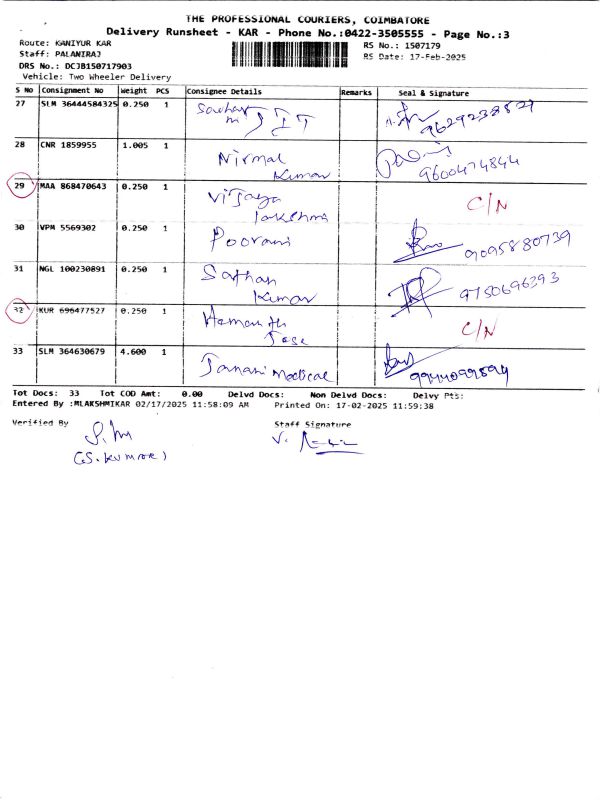 THE PROFESSIONAL COURIERS, COIMBATORE
Delivery Runsheet - KAR - Phone No.:0422-3505555 - Page No.:3
Route: KANIYUR KAR
RS No.: 1507179
Staff: PALANIRAJ
RS Date: 17-Feb-2025
DRS No.: DCJB150717903
Vehicle: Two Wheeler Delivery
S No Consignment No Weight PCS Consignee Details Remarks Seal & Signature
27 SLM 36444584325 0.250 1
28 CNR 1859955 1.005 1 Nirmal
Kumar 9600474844
29 MAA 868470643 0.250 1 Vijaya
lakshmi C/N
30 VPM 5569302 0.250 1 Poorani 9095880739
31 NGL 100230891 0.250 1 Sathan
Kumar 9750696393
32 KUR 696477527 0.250 1 Hemanth
Jose C/N
33 SLM 364630679 4.600 1 Janani Medical
Tot Docs: 33 Tot COD Amt: 0.00 Delvd Docs: Non Delvd Docs: Delvy Pts:
Entered By :MLAKSHMIKAR 02/17/2025 11:58:09 AM Printed On: 17-02-2025 11:59:38
Verified By Staff Signature
(S. Kumar)